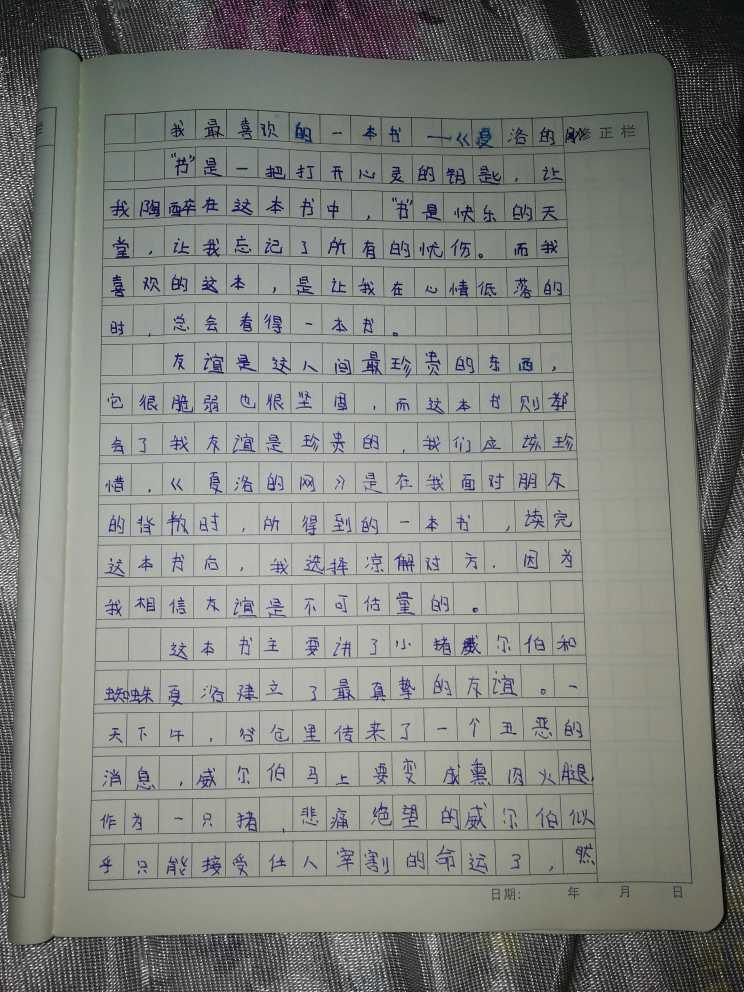 我最喜欢的一本书——《夏洛的网》
修正栏
"书"是一把打开心灵的钥匙，让
我陶醉在这本书中，"书"是快乐的天
堂，让我忘记了所有的忧伤。而我
喜欢的这本，是让我在心情低落的
时，总会看得一本书。
友谊是这人间最珍贵的东西，
它很脆弱也很坚固，而这本书则教
会了我友谊是珍贵的，我们应该珍
惜，《夏洛的网》是在我面对朋友
的背叛时，所得到的一本书，读完
这本书后，我选择凉解对方．因为
我相信友谊是不可估量的。
这本书主要讲了小猪威尔伯和
蜘蛛夏洛建立了最真挚的友谊。一
天下午，谷仓里传来了一个丑恶的
消息，威尔伯马上要变成熏肉火腿，
作为一只猪，悲痛绝望的威尔伯似
乎只能接受任人宰割的命运了，然
日期： 年 月 日